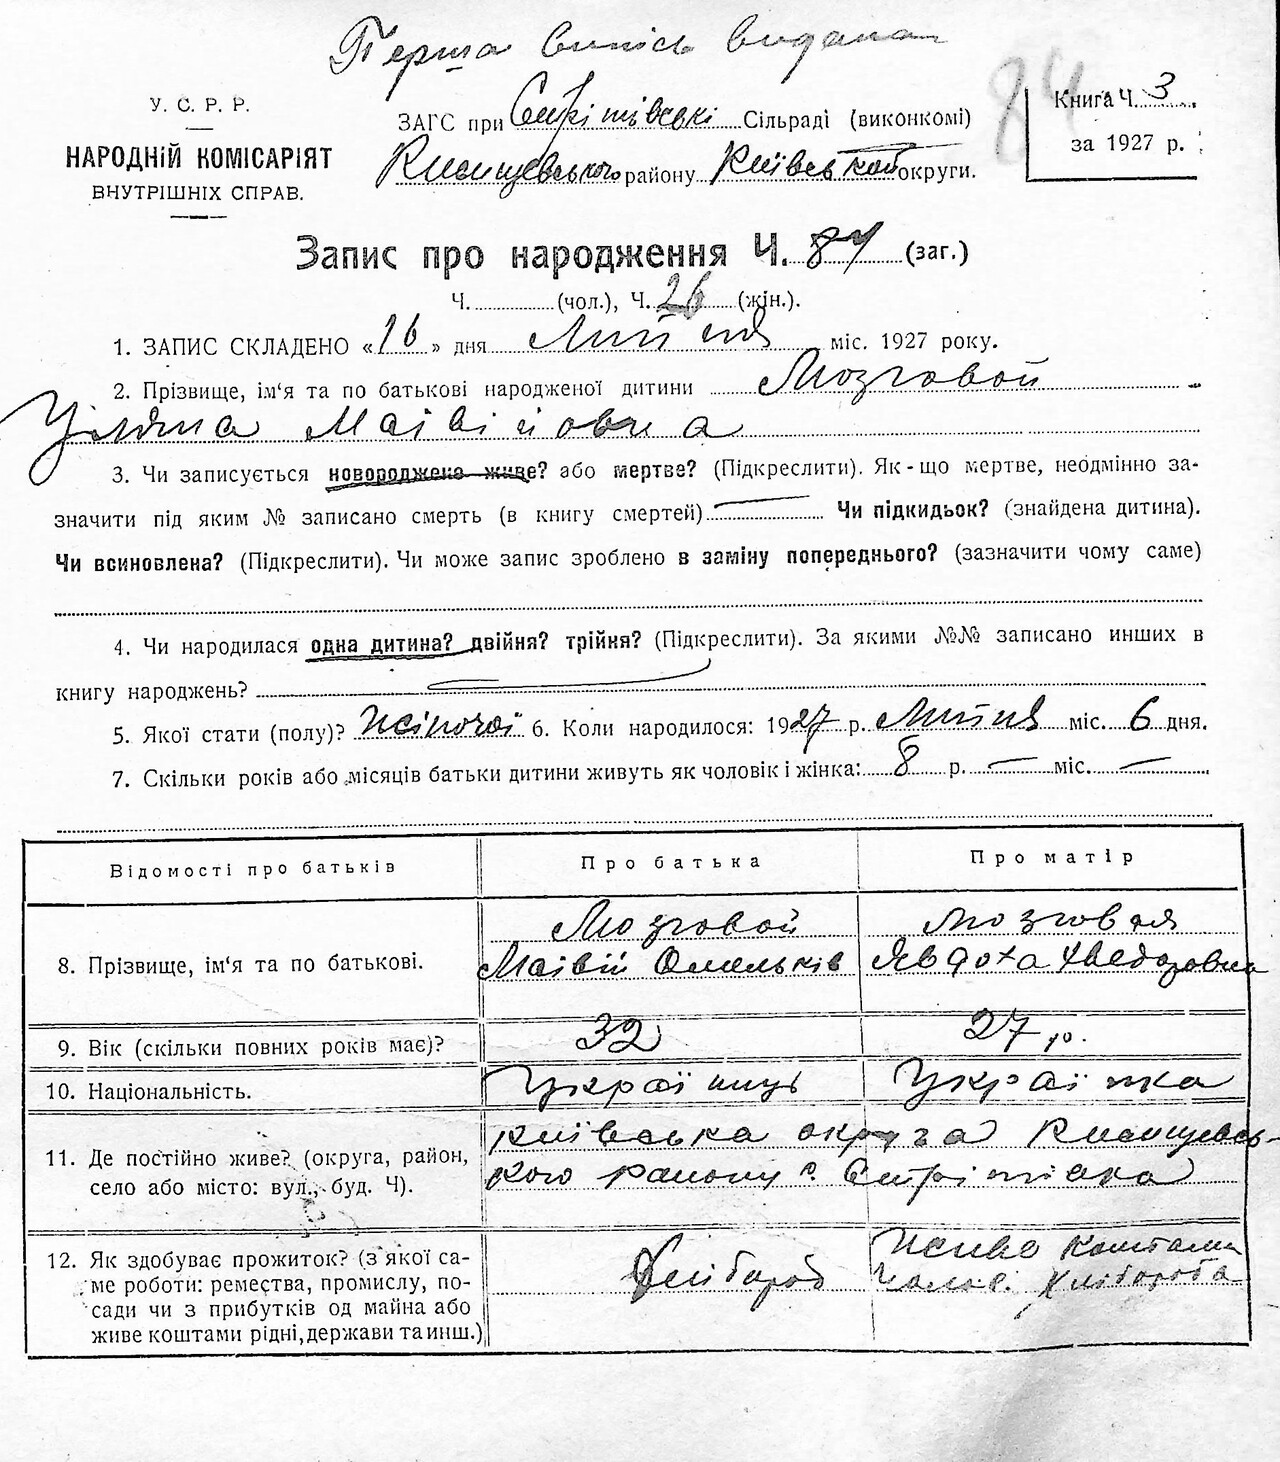 Перша випись видана
У. С. Р. Р.
НАРОДНІЙ КОМІСАРІЯТ
ВНУТРІШНІХ СПРАВ.
ЗАГС при Стрітівські Сільраді (виконкомі)
району Київської округи.
84
Книга Ч. 3
за 1927 р.
Запис про народження Ч. 84 (заг.)
Ч. (чол.), Ч. 26 (жін.).
1. ЗАПИС СКЛАДЕНО «16» дня Липня міс. 1927 року.
2. Прізвище, ім'я та по батькові народженої дитини Мозговой
Уляна Матвійовна
3. Чи записується новороджене живе? або мертве? (Підкреслити). Як-що мертве, неодмінно за-
значити під яким № записано смерть (в книгу смертей) Чи підкидьок? (знайдена дитина).
Чи всиновлена? (Підкреслити). Чи може запис зроблено в заміну попереднього? (зазначити чому саме)
4. Чи народилася одна дитина? двійня? трійня? (Підкреслити). За якими №№ записано инших в
книгу народжень?
5. Якої стати (полу)? Жіночої 6. Коли народилося: 1927 р. Липня міс. 6 дня.
7. Скільки років або місяців батьки дитини живуть як чоловік і жінка: 8 р. — міс. —
Відомості про батьків
Про батька
Про матір
8. Прізвище, ім'я та по батькові.
Мозговой
Матвій Омельків
Мозговая
Явдоха Хведоровна
9. Вік (скільки повних років має)?
32
27 р.
10. Національність.
Українць
Українка
11. Де постійно живе? (округа, район,
село або місто: вул., буд. Ч).
Київська округа
кого району с. Стрітівка
12. Як здобуває прожиток? (з якої са-
ме роботи: ремества, промислу, по-
сади чи з прибутків од майна або
живе коштами рідні, держави та инш.)
Хлібороб
Живе коштами
Чолов. Хлібороба